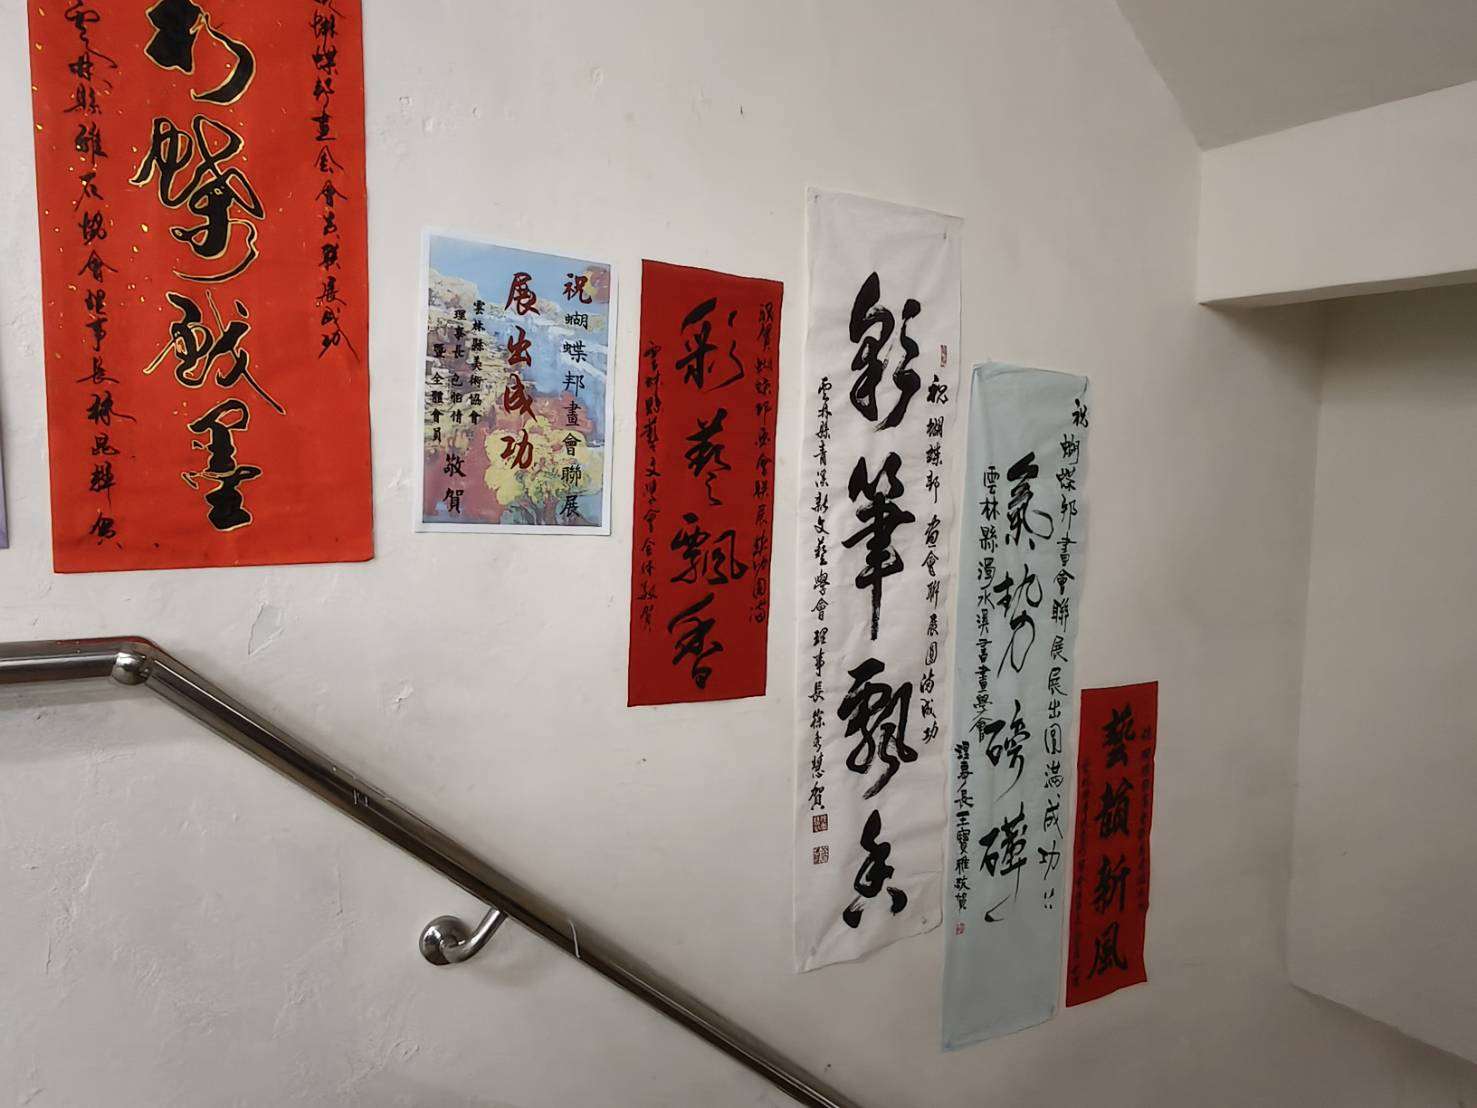 蝴蝶邦畫會會員聯展成功
彩蝶戲墨
雲林縣雅石協會理事長林昆輝 賀
祝蝴蝶邦畫會聯展
展出成功
雲林縣美術協會
理事長
暨全體會員
敬賀
祝賀蝴蝶邦畫會聯展成功圓滿
彩藝飄香
雲林縣藝文學會全体敬賀
祝蝴蝶邦畫會聯展圓滿成功
彩筆飄香
雲林縣青溪新文藝學會理事長徐秀慧賀
祝蝴蝶邦畫會聯展展出圓滿成功
氣勢磅礴
雲林縣濁水溪書畫學會
理事長王寶雅敬賀
藝韻新風